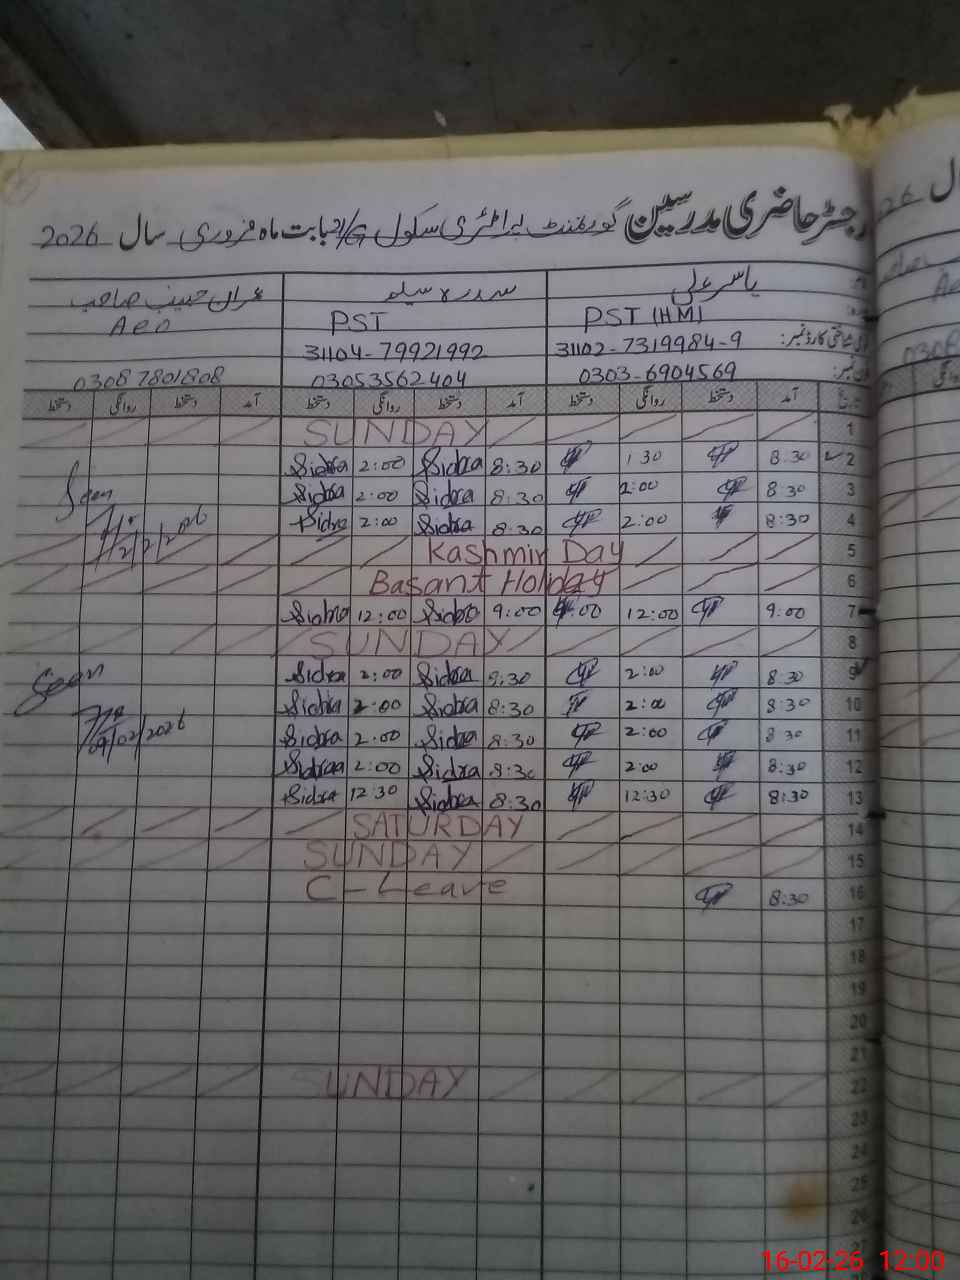 رجسٹر حاضری مدرسین گورنمنٹ پرائمری سکول بابت ماہ فروری سال 2026
یاسر علی
سدرہ
عمران حبیب صاحب
PST (HM)
PST
AEO
31102-7319984-9
31104-79921992
0303-6904569
03053562404
03087801808
آمد دستخط روانگی دستخط آمد دستخط روانگی دستخط آمد دستخط روانگی دستخط
SUNDAY 1
Sidra 2:00 Sidra 8:30 1 30 8.30 2
Sidra 2:00 Sidra 8:30 2:00 8:30 3
Seen
Sidra 2:00 Sidra 8:30 2:00 8:30 4
Kashmir Day 5
Basant Holiday 6
Sidra 12:00 Sidra 9:00 12:00 9:00 7
SUNDAY 8
Seen
Sidra 2:00 Sidra 8:30 2:00 8:30 9
Sidra 2:00 Sidra 8:30 2:00 8:30 10
09/02/2026
Sidra 2:00 Sidra 8:30 2:00 8 30 11
Sidraa 2:00 Sidra 8:30 2:00 8:30 12
Sidra 12:30 Sidra 8:30 12:30 8:30 13
SATURDAY 14
SUNDAY 15
C-Leave 8:30 16
17
18
19
20
21
SUNDAY 22
23
24
25
26
16-02-26 12:00